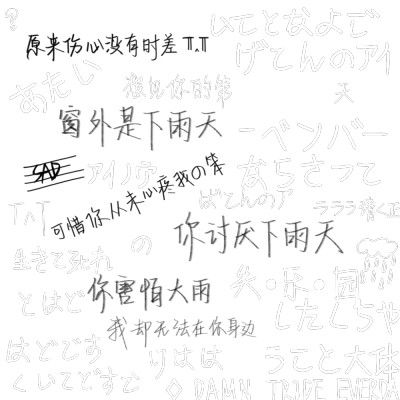 ?
いてとなよで
原来伤心没有时差 T^T
げてんのアイ
あたい
想见你的第
天
窗外是下雨天
ーベンバー
SAD
アイノウ
ならさって
可惜你从未心疼我の笨
ばてんのア
T^T
ラララ
你讨厌下雨天
生きて
の
你害怕大雨
失·乐·园
とはど
したくちゃ
我却无法在你身边
はどです
りはは
うこと大体
くいてどすで
DAMN TRIDE EVERDA